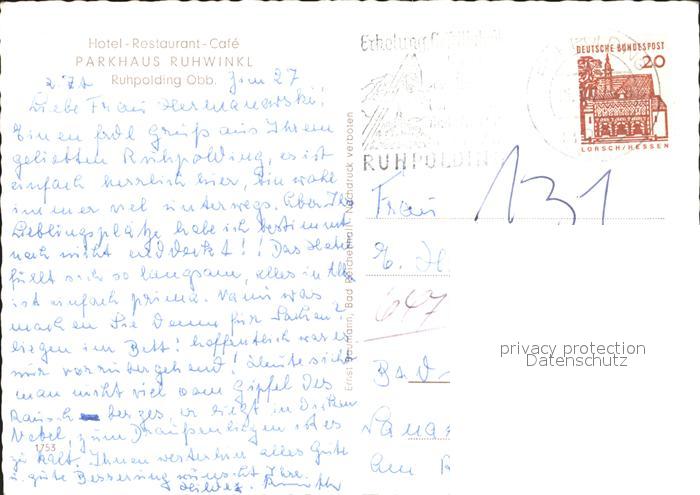 Hotel - Restaurant - Café
PARKHAUS RUHWINKL
Ruhpolding Obb.
z. Zt. Juni 27,
Liebe Frau Hermanowski!
Einen frdl Gruß aus Ihrem
geliebten Ruhpolding, es ist
einfach herrlich hier, bin wohl
immer viel unterwegs. Aber Ihre
Lieblingsplätze habe ich bestimmt
noch nicht entdeckt!! Das Hotel
füllt sich so langsam, alles in allem
ist einfach prima. Nanu was
machen Sie denn für Sachen?
liegen im Bett! hoffentlich war es
nur vorrübergehend! Heute sieht
man nicht viel vom Gipfel des
Rausch berges, er liegt in dickem
Nebel, zum Draußenliegen ist es
zu kalt. Ihnen weiterhin alles Gute
u. gute Besserung wünscht Ihre
1753
Ernst Baumann, Bad Reichenhall - Nachdruck verboten
Erholung
RUHPOLDIN
DEUTSCHE BUNDESPOST
20
LORSCH/HESSEN
131
Frau
E. H
647
Bad-
am
privacy protection
Datenschutz